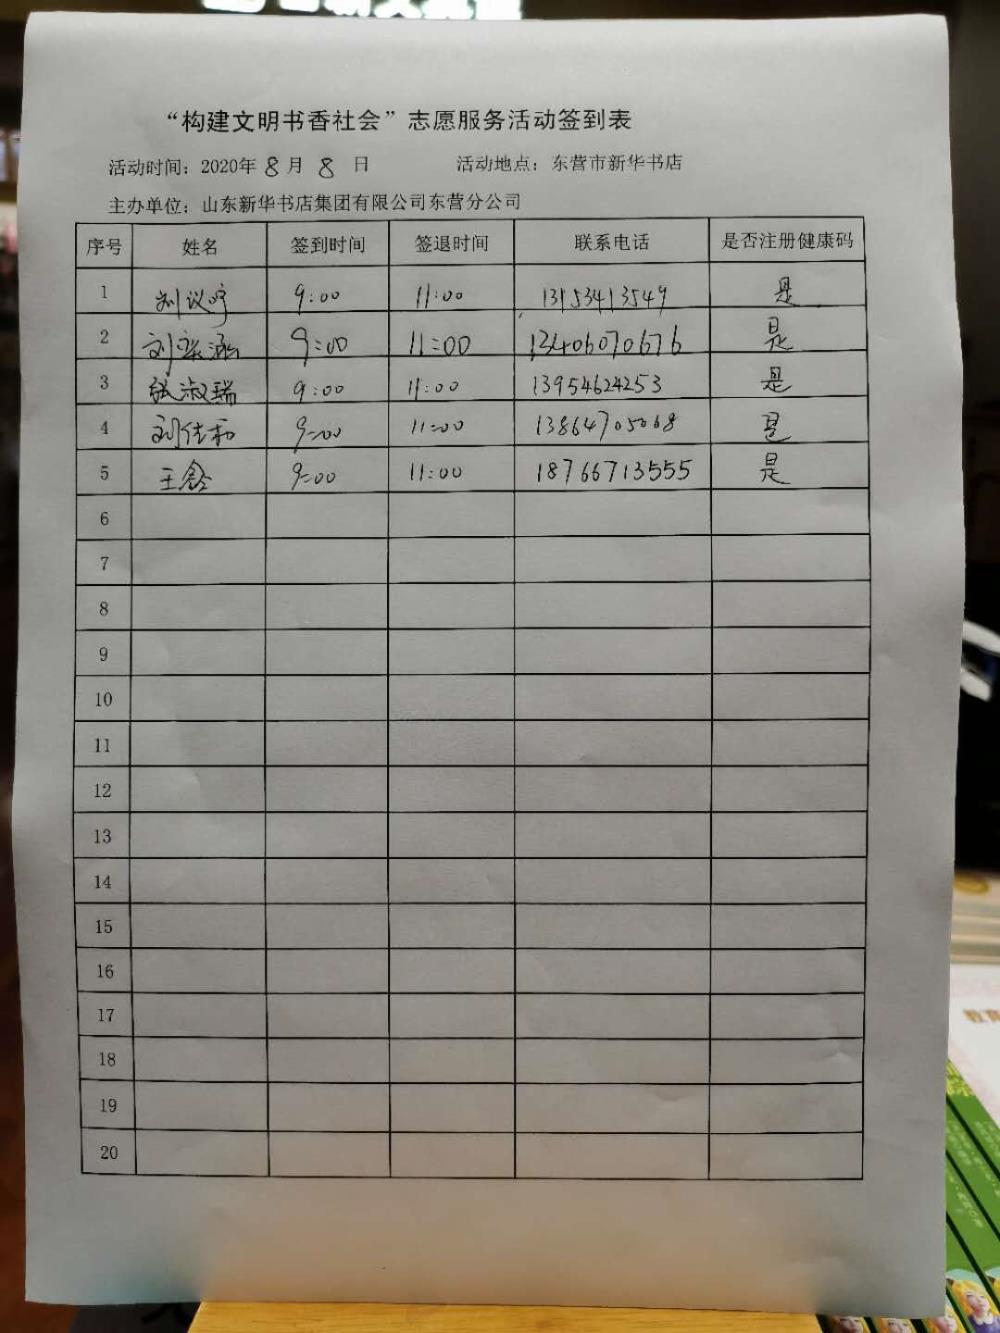 “构建文明书香社会”志愿服务活动签到表
活动时间：2020年 8月 8 日 活动地点：东营市新华书店
主办单位：山东新华书店集团有限公司东营分公司
序号 姓名 签到时间 签退时间 联系电话 是否注册健康码
1 刘议 9:00 11:00 13153413549 是
2 刘涵 9:00 11:00 13406070676 是
3 张淑瑞 9:00 11:00 13954624253 是
4 刘佳和 9:00 11:00 13864705068 是
5 王 9:00 11:00 18766713555 是
6
7
8
9
10
11
12
13
14
15
16
17
18
19
20
教育